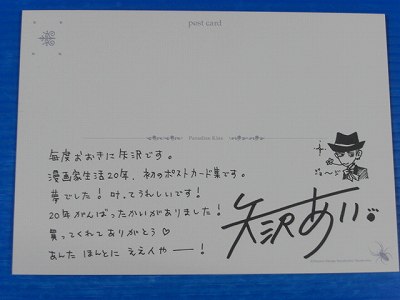 post card
Paradise Kiss
毎度おおきに矢沢です。
漫画家生活20年、初のポストカード集です。
夢でした!叶ってうれしいです!
20年がんばったかいがありました!
買ってくれてありがとう♡
あんたほんとにええんやー!
矢沢あい